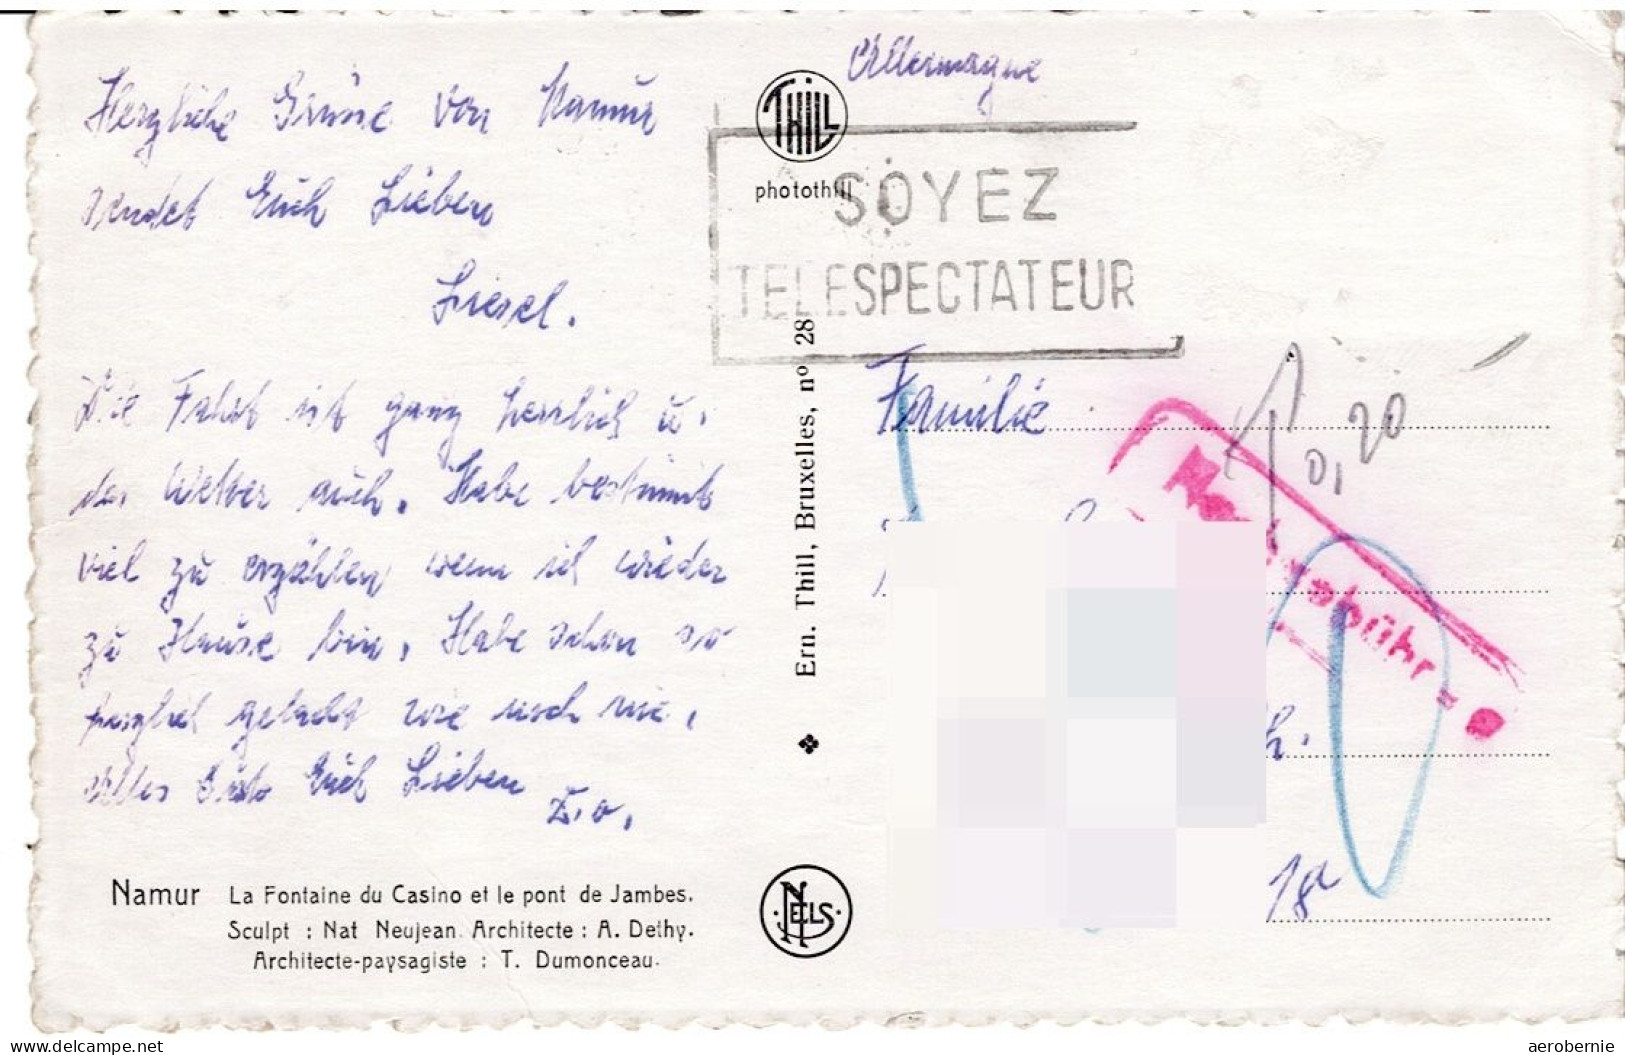 Herzliche Grüsse von Namur
sendet Euch Lieben
Liesel.
Die Fahrt ist ganz herrlich u.
das Wetter auch. Habe bestimmt
viel zu erzählen wenn ich wieder
zu Hause bin. Habe schon so
herzlich gelacht wie noch nie.
Alles Gute Euch Lieben
Namur La Fontaine du Casino et le pont de Jambes.
Sculpt : Nat Neujean Architecte : A. Dethy.
Architecte-paysagiste : T. Dumonceau.
THILL
photothill
Ern. Thill, Bruxelles, nº 28
NELS
Allemagne
SOYEZ
TELESPECTATEUR
Familie
0,20
Nachgebühr
h.
1a
www.delcampe.net
aerobernie